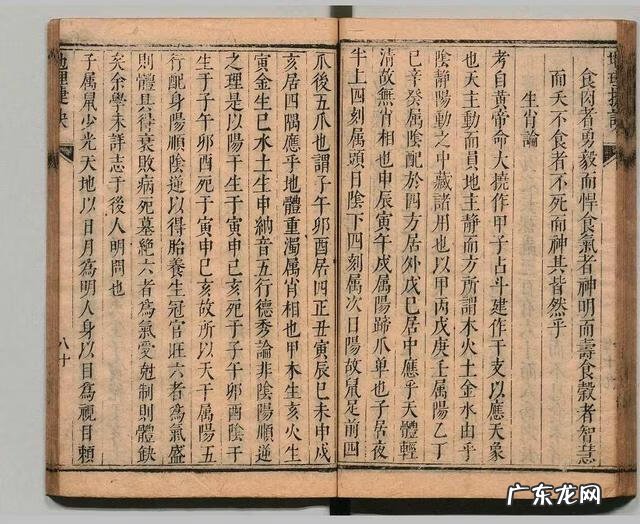 食肉者勇毅而悍食氣者神明而壽食穀者智慧
而夭不食者不死而神其皆然乎
生肖論
考自黃帝命大撓作甲子占斗建作干支以應天象
也天主動而員地主靜而方所謂木火土金水由乎
陰靜陽動之中藏諸用也以甲丙戊庚壬屬陽乙丁
己辛癸屬陰配於四方居外戊己居中應乎天體輕
清故無肖相也申辰寅午戌屬陽蹄爪單也子居夜
半上四刻屬頭日陰下四刻屬次日陽故鼠足前四
爪後五爪也謂子午卯酉居四正丑寅辰巳未申戌
亥居四隅應乎地體重濁屬肖相也甲木生亥火生
寅金生巳水土生申納音五行德秀論非陰陽順逆
之理是以陽干生于寅申巳亥死于子午卯酉陰干
生于子午卯酉死于寅申巳亥故所以天干屬陽五
行配身陽順陰逆以得胎養生冠官旺六者為氣盛
則體具得衰敗病死墓絕六者為氣受剋制則體缺
矣余學未詳志于後人明問也
子屬鼠少光天地以日月為明人身以目為視目賴
地理捷訣
八十
广东龙网
www.gdlongw.com